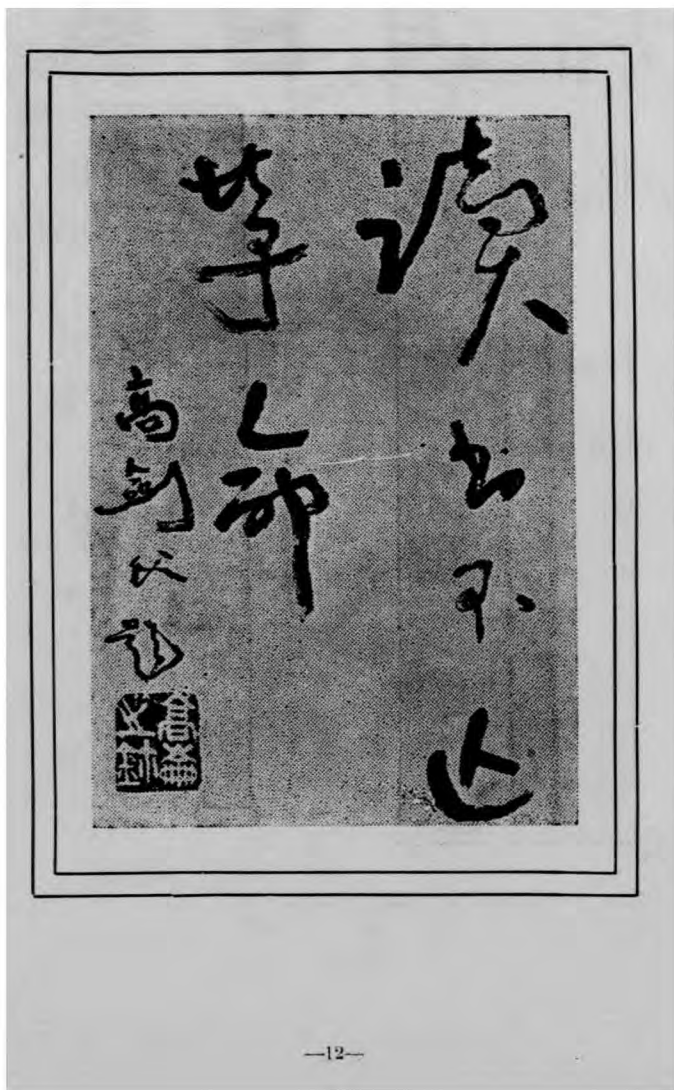 讀書不忘
革命
高劍父題
高崙
之鉥
—12—